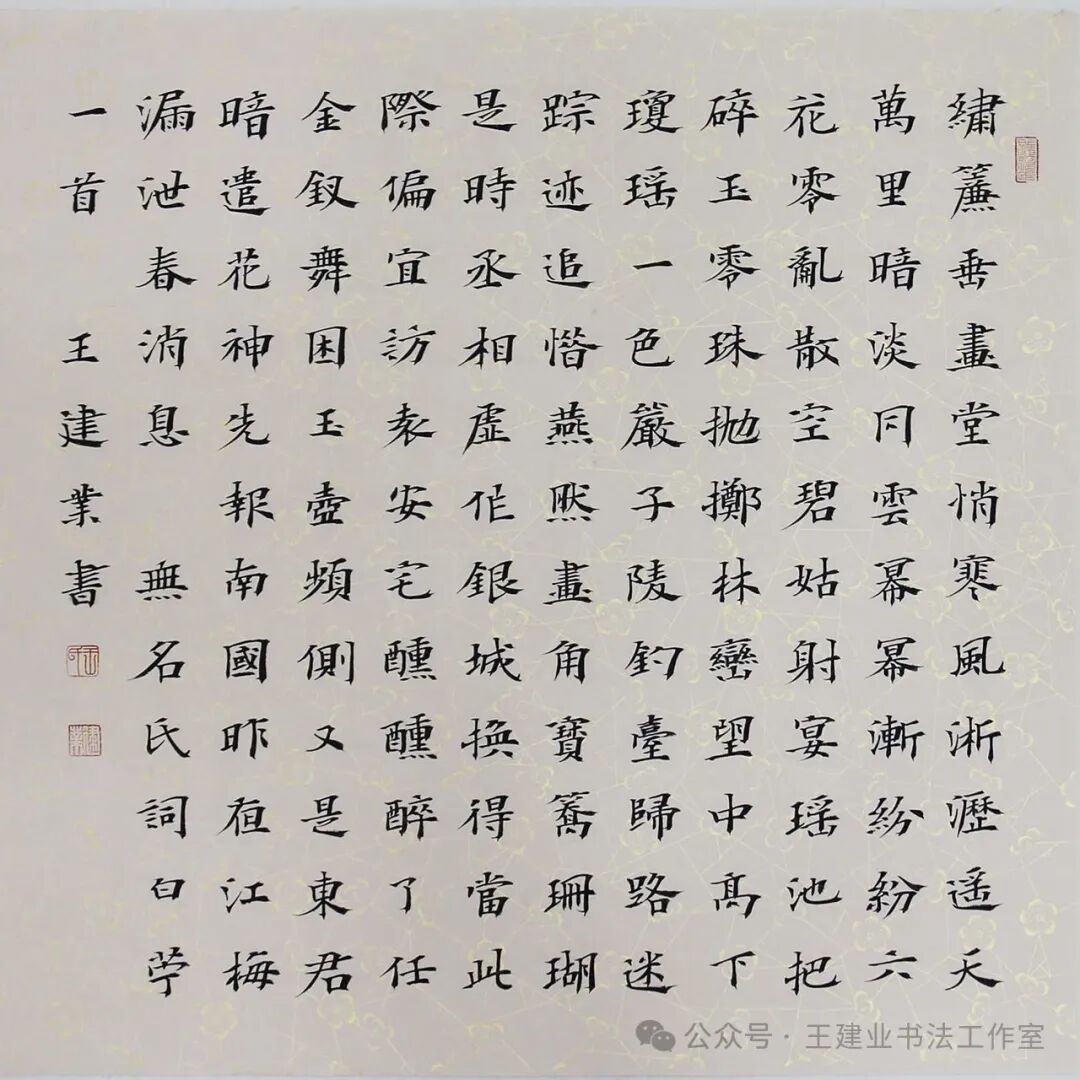 繡簾垂畫堂悄寒風淅瀝遥天
萬里暗淡同雲冪冪漸紛紛六
花零亂散空碧姑射宴瑶池把
碎玉零珠抛擲林巒望中高下
瓊瑶一色嚴子陵釣臺歸路迷
踪迹追惜燕然畫角寶簥珊瑚
是時丞相虚作銀城换得當此
際偏宜訪袁安宅醺醺醉了任
金釵舞困玉壺頻側又是東君
暗遣花神先報南國昨夜江梅
漏泄春消息 無名氏詞白苧
一首 王建業書
公众号·王建业书法工作室